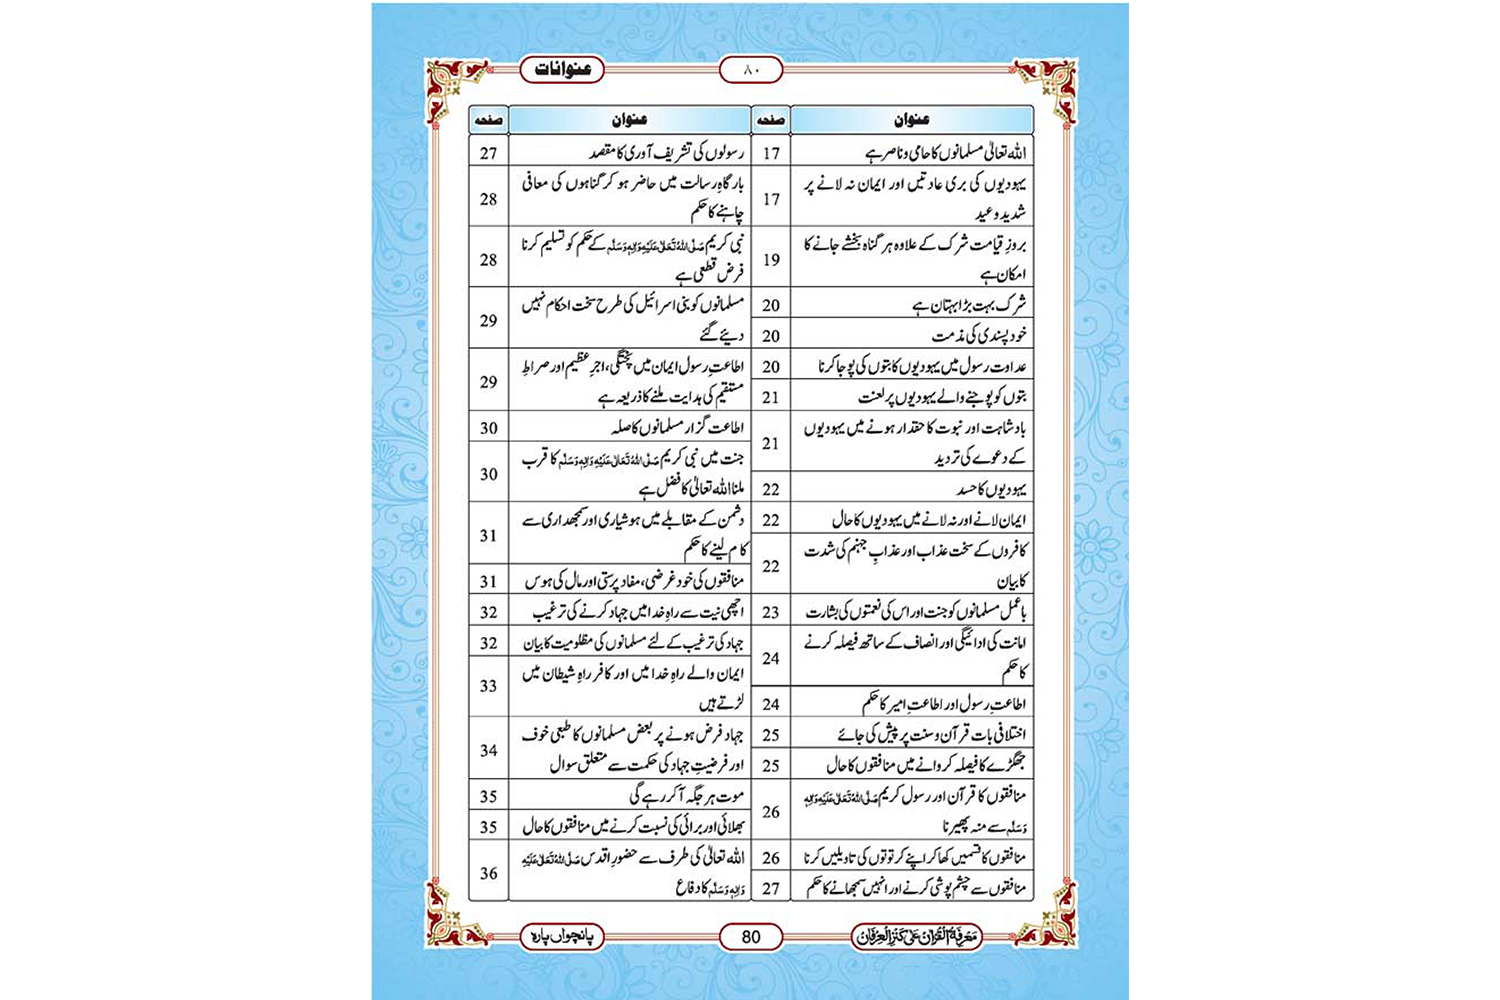 عنوانات
۸۰
عنوان صفحہ
اللہ تعالیٰ مسلمانوں کا حامی و ناصر ہے 17
یہودیوں کی بری عادتیں اور ایمان نہ لانے پر
شدید وعید 17
بروزِ قیامت شرک کے علاوہ ہر گناہ بخشے جانے کا
امکان ہے 19
شرک بہت بڑا بہتان ہے 20
خود پسندی کی مذمت 20
عداوت رسول میں یہودیوں کا بتوں کی پوجا کرنا 20
بتوں کو پوجنے والے یہودیوں پر لعنت 21
بادشاہت اور نبوت کا حقدار ہونے میں یہودیوں
کے دعوے کی تردید 21
یہودیوں کا حسد 22
ایمان لانے اور نہ لانے میں یہودیوں کا حال 22
کافروں کے سخت عذاب اور عذابِ جہنم کی شدت
کا بیان 22
باعمل مسلمانوں کو جنت اور اس کی نعمتوں کی بشارت 23
امانت کی ادائیگی اور انصاف کے ساتھ فیصلہ کرنے
کا حکم 24
اطاعتِ رسول اور اطاعتِ امیر کا حکم 24
اختلافی بات قرآن و سنت پر پیش کی جائے 25
جھگڑے کا فیصلہ کروانے میں منافقوں کا حال 25
منافقوں کا قرآن اور رسول کریم صَلَّی اللہُ تَعَالٰی عَلَیْہِ وَاٰلِہٖ
وَسَلَّم سے منہ پھیرنا 26
منافقوں کا قسمیں کھا کر اپنے کرتوتوں کی تاویلیں کرنا 26
منافقوں سے چشم پوشی کرنے اور انہیں سمجھانے کا حکم 27
عنوان صفحہ
رسولوں کی تشریف آوری کا مقصد 27
بارگاہِ رسالت میں حاضر ہو کر گناہوں کی معافی
چاہنے کا حکم 28
نبی کریم صَلَّی اللہُ تَعَالٰی عَلَیْہِ وَاٰلِہٖ وَسَلَّم کے حکم کو تسلیم کرنا
فرض قطعی ہے 28
مسلمانوں کو بنی اسرائیل کی طرح سخت احکام نہیں
دیئے گئے 29
اطاعتِ رسول ایمان میں پختگی، اجرِ عظیم اور صراطِ
مستقیم کی ہدایت ملنے کا ذریعہ ہے 29
اطاعت گزار مسلمانوں کا صلہ 30
جنت میں نبی کریم صَلَّی اللہُ تَعَالٰی عَلَیْہِ وَاٰلِہٖ وَسَلَّم کا قرب
ملنا اللہ تعالیٰ کا فضل ہے 30
دشمن کے مقابلے میں ہوشیاری اور سمجھداری سے
کام لینے کا حکم 31
منافقوں کی خود غرضی، مفاد پرستی اور مال کی ہوس 31
اچھی نیت سے راہِ خدا میں جہاد کرنے کی ترغیب 32
جہاد کی ترغیب کے لئے مسلمانوں کی مظلومیت کا بیان 32
ایمان والے راہِ خدا میں اور کافر راہِ شیطان میں
لڑتے ہیں 33
جہاد فرض ہونے پر بعض مسلمانوں کا طبعی خوف
اور فرضیتِ جہاد کی حکمت سے متعلق سوال 34
موت ہر جگہ آ کر رہے گی 35
بھلائی اور برائی کی نسبت کرنے میں منافقوں کا حال 35
اللہ تعالیٰ کی طرف سے حضورِ اقدس صَلَّی اللہُ تَعَالٰی عَلَیْہِ
وَاٰلِہٖ وَسَلَّم کا دفاع 36
مَعْرِفَۃُ الْقُرْاٰن عَلٰی کَنْزِ الْعِرْفَان
80
پانچواں پارہ